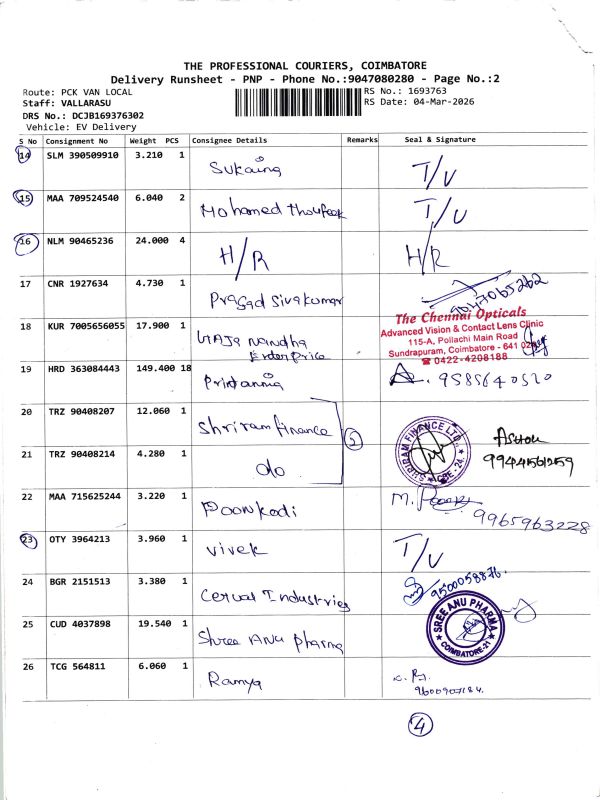 THE PROFESSIONAL COURIERS, COIMBATORE
Delivery Runsheet - PNP - Phone No.:9047080280 - Page No.:2
Route: PCK VAN LOCAL
Staff: VALLARASU
DRS No.: DCJB169376302
Vehicle: EV Delivery
RS No.: 1693763
RS Date: 04-Mar-2026
S No Consignment No Weight PCS Consignee Details Remarks Seal & Signature
14 SLM 390509910 3.210 1 Sukaina T/U
15 MAA 709524540 6.040 2 Mohamed Thoufeek T/U
16 NLM 90465236 24.000 4 H/R H/R
17 CNR 1927634 4.730 1 Prasad Sivakumar 9047065262
18 KUR 7005656055 17.900 1
The Chennai Opticals
Advanced Vision & Contact Lens Clinic
115-A, Pollachi Main Road
Sundrapuram, Coimbatore - 641
☎ 0422-4208188
19 HRD 363084443 149.400 18 Printania 9585640520
20 TRZ 90408207 12.060 1 Shriram finance
5
SHRIRAM FINANCE LTD. CBE-24.
Ashok
9944561259
21 TRZ 90408214 4.280 1 do
22 MAA 715625244 3.220 1 Poonkodi M. 9965963228
23 OTY 3964213 3.960 1 Vivek T/U
24 BGR 2151513 3.380 1 Industries 9500058876.
25 CUD 4037898 19.540 1 Shree Anu pharma
SREE ANU PHARMA COIMBATORE-21
26 TCG 564811 6.060 1 Ramya
4